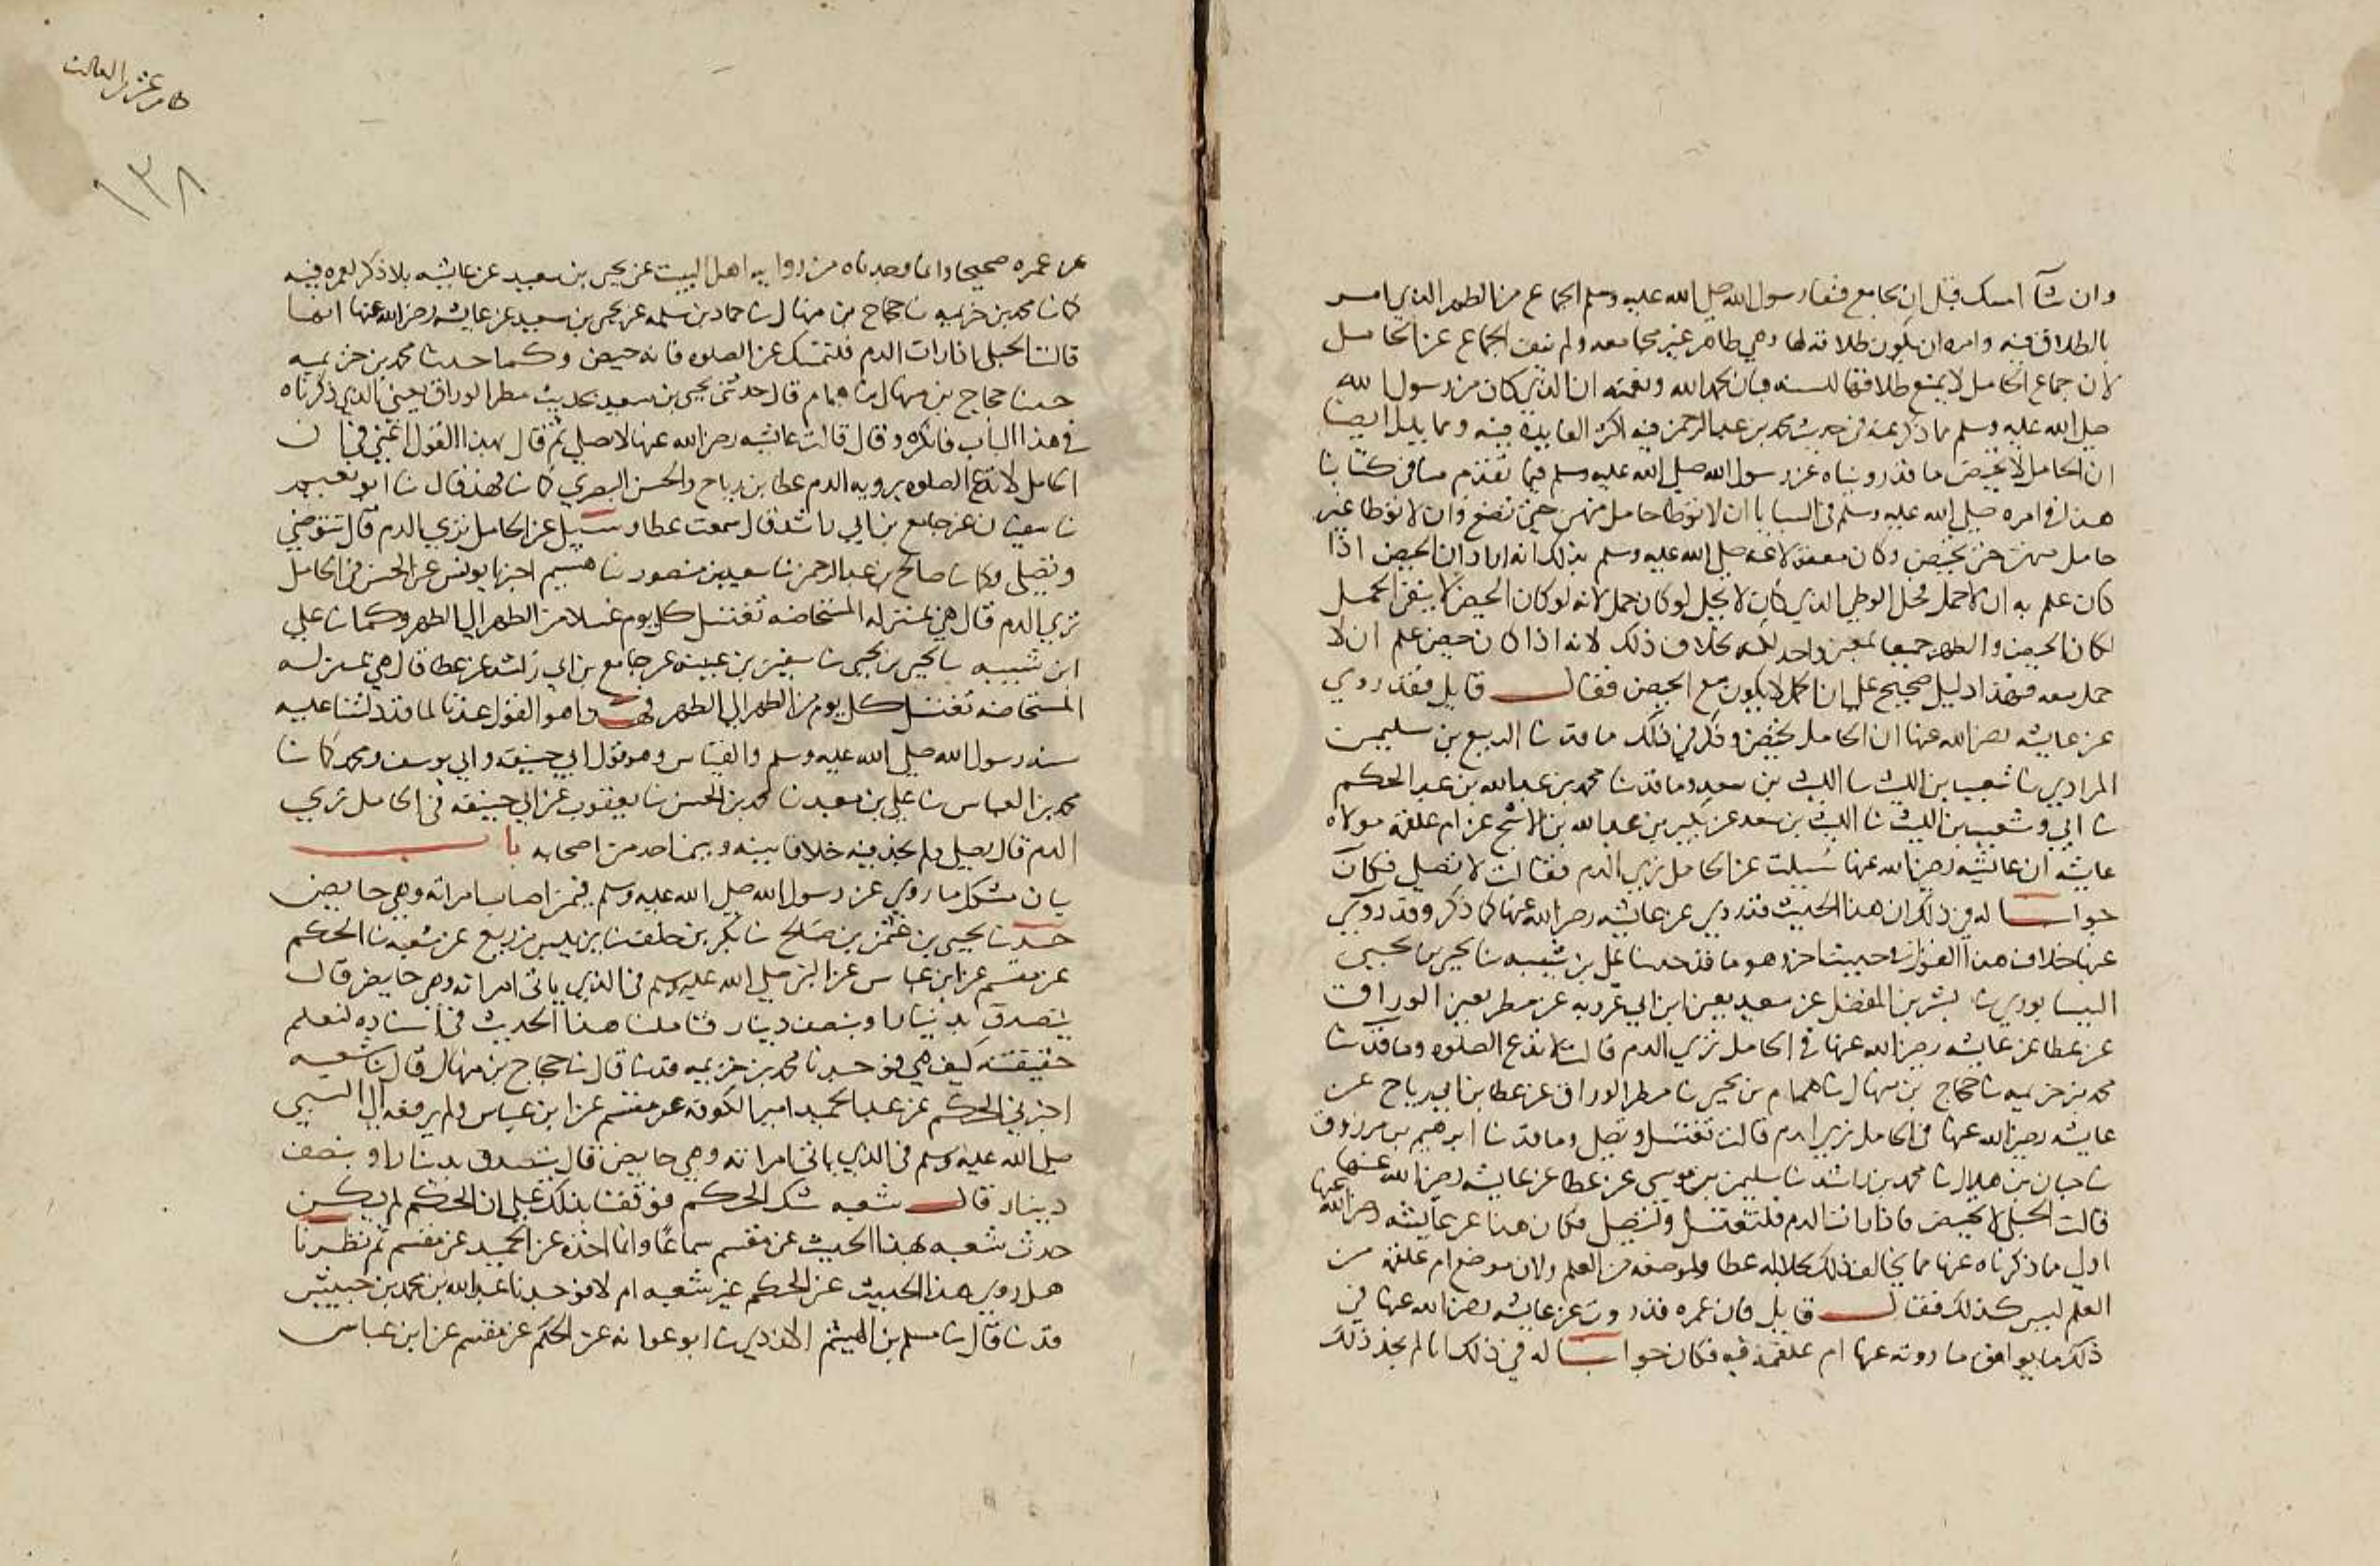 وان شآ امسك قبل ان يجامع فنفا رسول الله صلى الله عليه وسلم الجماع من الطهر الذي امر
بالطلاق فيه وامره ان يكون طلاقه لها وهي طاهر غير مجامعه ولم ينف الجماع عن الحامل
لان جماع الحامل لا يمنع طلاقها للسنه فبان بحمد الله ونعمته ان الذي كان من رسول الله
صلى الله عليه وسلم مما ذكر عنه في حديث محمد بن عبد الرحمن فيه اكبر الفايدة فيه ومما يدل ايضا
ان الحامل لا تحيض ما قد رويناه عن رسول الله صلى الله عليه وسلم فيما تقدم منا في كتابنا
هذا في امره صلى الله عليه وسلم في السبايا ان لا توطا حامل منهن حتى تضع وان لا توطا غير
حامل منهن حتى تحيض وكان معقولا عنه صلى الله عليه وسلم بذلك انه اراد ان الحيض اذا
كان علم به ان لا حمل فحل الوطي الذي كان لا يحل لو كان حمل لانه لو كان الحيض لا ينفي الحمل
لكان الحيض والطهر جميعا بمعنى واحد لكنه بخلاف ذلك لانه اذا كان حيض علم ان لا
حمل معه فهذا دليل صحيح على ان الحمل لا يكون مع الحيض فقال قايل فقد روي
عن عايشه رضي الله عنها ان الحامل تحيض وذكر في ذلك ما قد نا الربيع بن سليمن
المرادي نا شعيب بن الليث نا الليث بن سعد وما قد نا محمد بن عبد الله بن عبد الحكم
نا ابي وشعيب بن الليث نا الليث بن سعد عن بكير بن عبد الله بن الاشج عن ام علقمه مولاه
عايشه ان عايشه رضي الله عنها سُيلت عن الحامل ترى الدم فقالت لا تصلي فكان
جوابنا له في ذلك ان هذا الحديث قد روي عن عايشه رضي الله عنها كما ذكر وقد روي
عنها خلاف هذا القول في حديث اخر وهو ما قد حدثنا علي بن شيبه نا يحيى بن يحيى
النيسابوري نا بشر بن المفضل عن سعيد يعني ابن ابي عروبه عن مطر يعني الوراق
عن عطا عن عايشه رضي الله عنها في الحامل ترى الدم قالت لا تدع الصلوه وما قد نا
محمد بن خزيمه نا حجاج بن منهال نا همام بن يحيى نا مطر الوراق عن عطا بن ابي رباح عن
عايشه رضي الله عنها في الحامل ترى الدم قالت تغتسل وتصلي وما قد نا ابرهيم بن مرزوق
نا حبان بن هلال نا محمد بن راشد نا سليمن بن موسى عن عطا عن عايشه رضي الله عنها
قالت الحبلى لا تحيض فاذا رات الدم فلتغتسل ولتصل فكان هذا عن عايشه رضي الله عنها
اولى مما ذكرناه عنها مما يخالف ذلك لجلاله عطا ولموضعه من العلم ولان موضع ام علقمه من
العلم ليس كذلك فقال قايل فان عمره قد روت عن عايشه رضي الله عنها في
ذلك ما يوافق ما روته عنها ام علقمه فيه فكان جوابنا له في ذلك انا لم نجد ذلك
كامر عشر الثالث
١٣٨
عن عمره صحيحا وانما وجدناه من روايه اهل البيت عن يحيى بن سعيد عن عايشه بلا ذكر لعمره فيه
كما نا محمد بن خزيمه نا حجاج بن منهال نا حماد بن سلمه عن يحيى بن سعيد عن عايشه رضي الله عنها انها
قالت الحبلى اذا رات الدم فلتمسك عن الصلوه فانه حيض وكما حدثنا محمد بن خزيمه
حدثنا حجاج بن منهال نا همام قال حدثني يحيى بن سعيد بحديث مطر الوراق يعني الذي ذكرناه
في هذا الباب فانكره وقال قالت عايشه رضي الله عنها لا تصلي ثم قال بهذا القول اعني في ان
الحامل لا تدع الصلوه برويه الدم عطا بن رباح والحسن البصري كما نا فهد قال نا ابو نعيم
نا سفيان عن جامع بن ابي راشد قال سمعت عطا وسيل عن الحامل ترى الدم قال تتوضي
وتصلي وكما نا صالح بن عبد الرحمن نا سعيد بن منصور نا هشيم اخبرنا يونس عن الحسن في الحامل
ترى الدم قال هي بمنزله المستحاضه تغتسل كل يوم غسلا من الطهر الى الطهر وكما نا علي
ابن شيبه نا يحيى بن يحيى نا سفين بن عيينه عن جامع بن ابي راشد عن عطا قال هي بمنزله
المستحاضه تغتسل كل يوم من الطهر الى الطهر فهذا هو القول عندنا لما قد دلتنا عليه
سنه رسول الله صلى الله عليه وسلم والقياس وهو قول ابي حنيفه وابي يوسف ومحمد كما نا
محمد بن العباس نا علي بن معبد نا محمد بن الحسن نا يعقوب عن ابي حنيفه في الحامل ترى
الدم قال تصلي ولم نجد فيه خلافا بينه وبين احد من اصحابه باب
بيان مشكل ما روي عن رسول الله صلى الله عليه وسلم فيمن اصاب امراته وهي حايض
حدثنا يحيى بن عثمن بن صالح نا بكر بن خلف نا يزيد بن زريع عن شعبه نا الحكم
عن مقسم عن ابن عباس عن النبي صلى الله عليه وسلم في الذي ياتي امراته وهي حايض قال
يتصدق بدينار او بنصف دينار فتاملنا هذا الحديث في اسناده لنعلم
حقيقته كيف هي فوجدنا محمد بن خزيمه قد نا قال نا حجاج بن منهال قال نا شعبه
اخبرني الحكم عن عبد الحميد امير الكوفه عن مقسم عن ابن عباس ولم يرفعه الى النبي
صلى الله عليه وسلم في الذي ياتي امراته وهي حايض قال يتصدق بدينار او بنصف
دينار قال شعبه شك الحكم فوقفنا بذلك على ان الحكم لم يكن
حدث شعبه بهذا الحديث عن مقسم سماعًا وانما اخذه عن عبد الحميد عن مقسم ثم نظرنا
هل روى هذا الحديث عن الحكم غير شعبه ام لا فوجدنا عبد الله بن محمد بن حبيش
قد نا قال نا مسلم بن الهيثم الازدي نا ابو عوانه عن الحكم عن مقسم عن ابن عباس